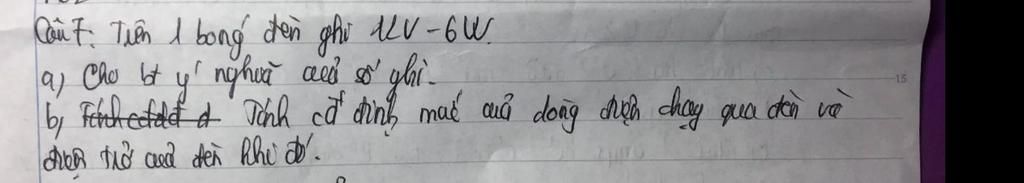 Câu 7: Trên 1 bóng đèn ghi 12V - 6W.
a) Cho bt ý nghĩa của số ghi.
b) Tính cđ định mức của dòng điện chạy qua đèn và
điện trở của đèn khi đó.
15